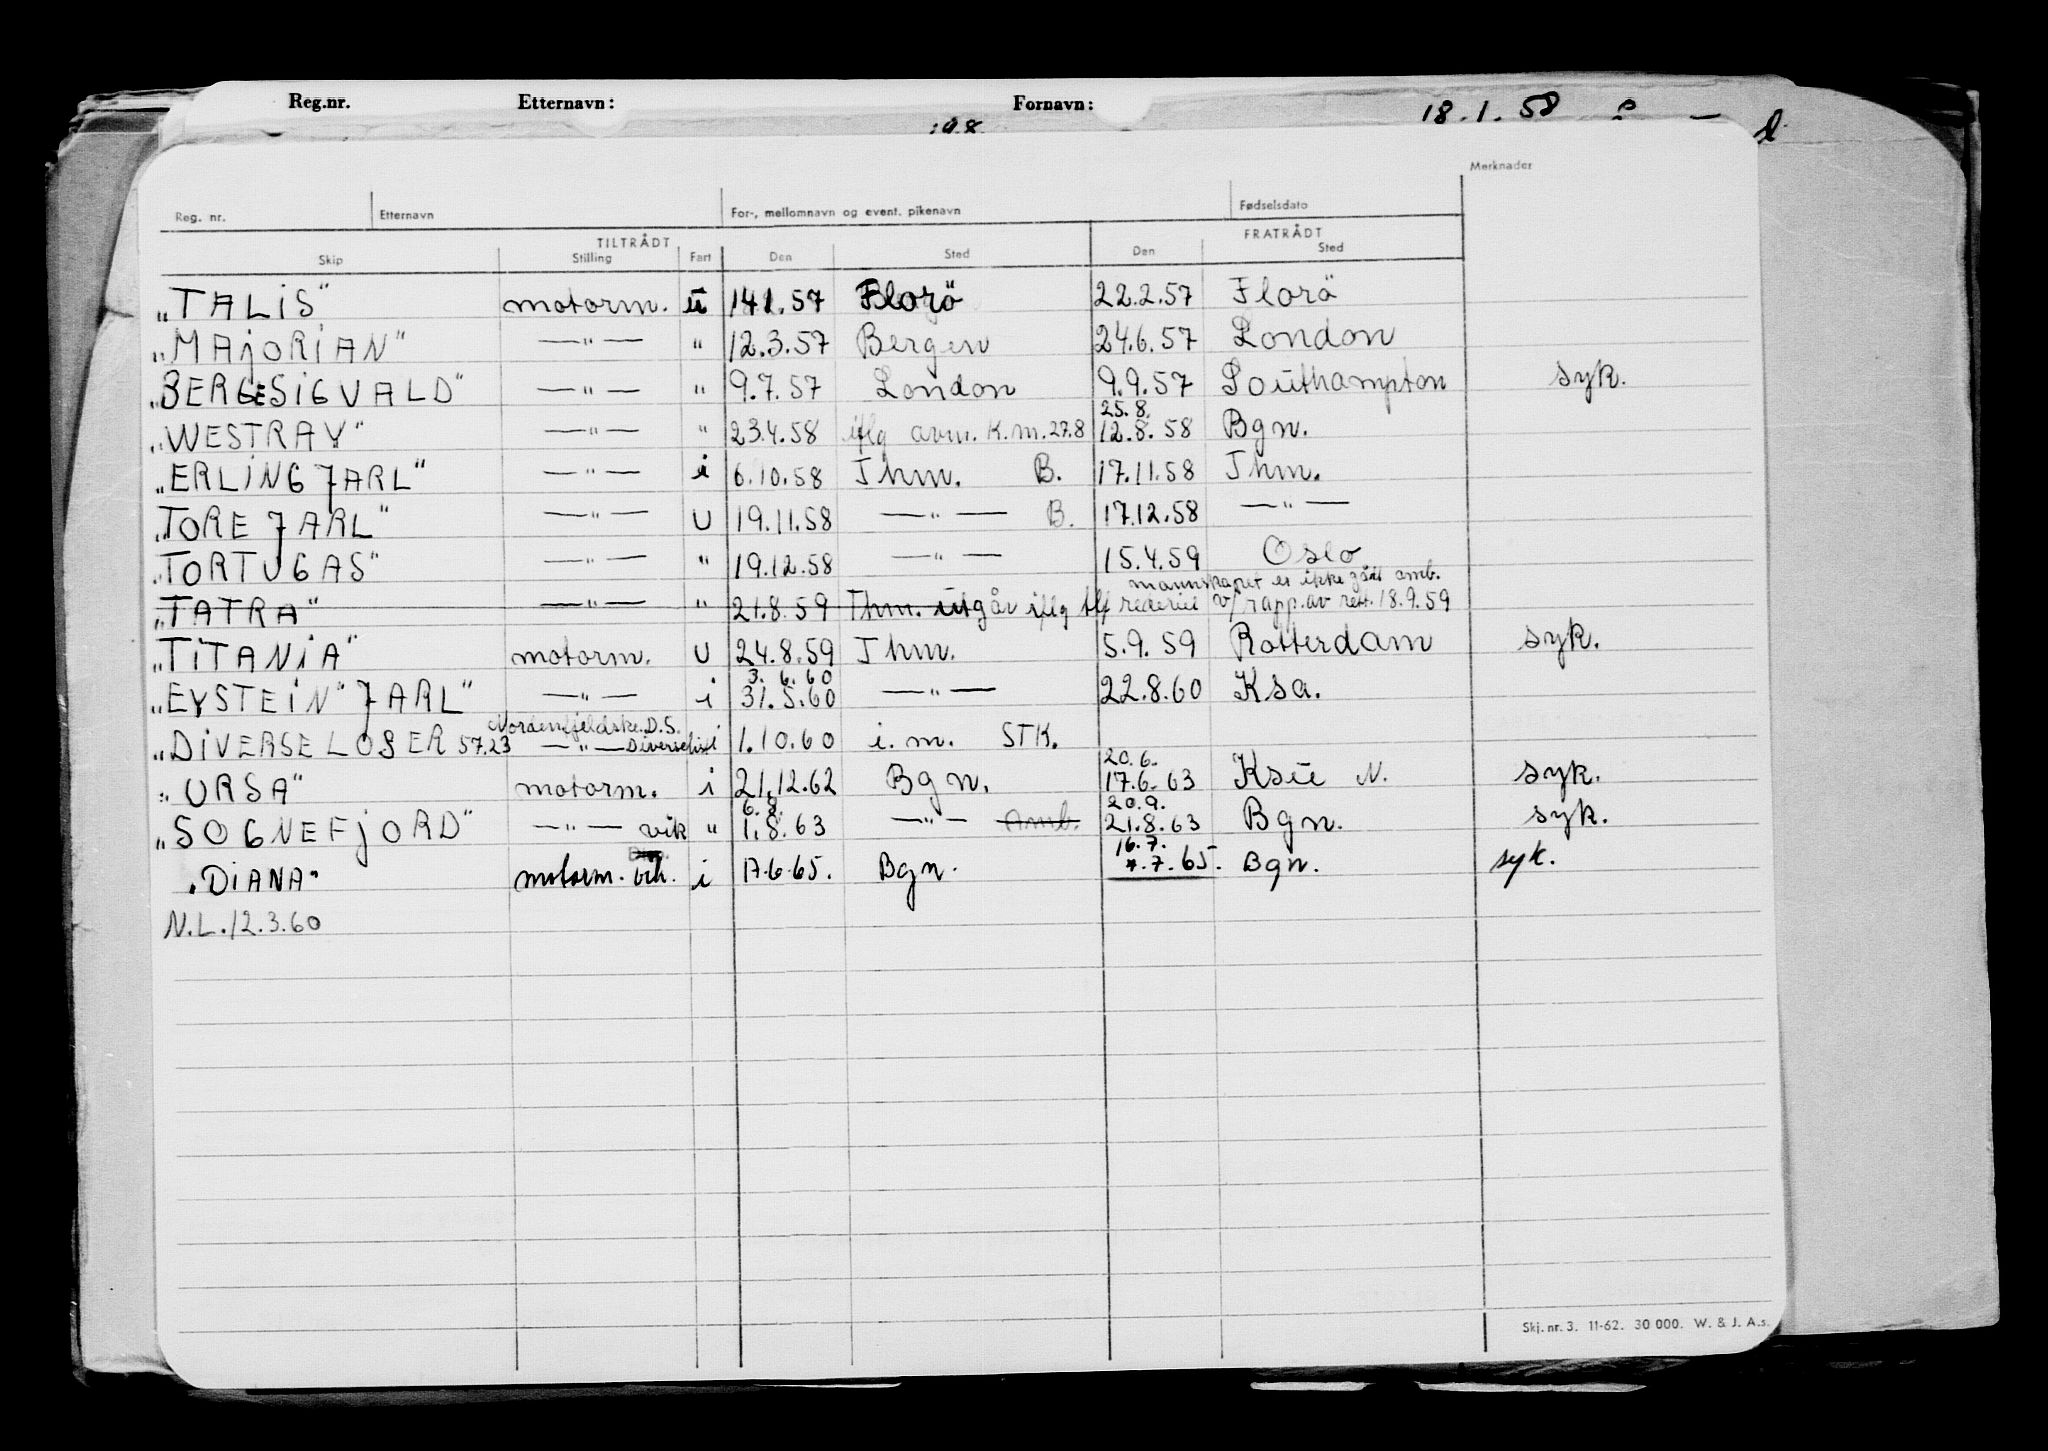 Reg.nr. Etternavn: Fornavn: 18.1.58
Merknader
Reg. nr. Etternavn For-, mellomnavn og event. pikenavn Fødselsdato
TILTRÅDT FRATRÅDT
Skip Stilling Fart Den Sted Den Sted
„TALIS" motorm. u 14.1.57 Florö 22.2.57 Florö
„MAJORIAN" —"— " 12.3.57 Bergen 24.6.57 London
„BERGESIGVALD" —"— " 9.7.57 London 9.9.57 Southampton syk.
25.8.
„WESTRAY" —"— " 23.4.58 iflg avm. K.m. 27.8 12.8.58 Bgn.
„ERLING JARL" —"— i 6.10.58 Thm. B. 17.11.58 Thm.
„TORE JARL" —"— U 19.11.58 —"— B. 17.12.58 —"—
„TORTUGAS" —"— " 19.12.58 —"— 15.4.59 Oslo
mannskapet er ikke gått omb.
„TATRA" —"— " 21.8.59 Thm. utgår iflg tlf rederiet v/rapp.av rett. 18.9.59
„TITANIA" motorm. U 24.8.59 Thm. 5.9.59 Rotterdam syk.
3.6.60
„EYSTEIN" JARL" —"— i 31.5.60 —"— 22.8.60 Ksa.
Nordenfjeldske.D.S.
„DIVERSE LOSER 57.23 —"— i 1.10.60 i.m. STK.
20.6.
„URSA" motorm. i 21.12.62 Bgn. 17.6.63 Ksu N. syk.
6.8. 20.9.
„SOGNEFJORD" —"— vik " 1.8.63 —"— Amb. 21.8.63 Bgn. syk.
16.7.
„DIANA" motorm. vik. i 17.6.65. Bgn. .7.65. Bgn. syk.
N.L.12.3.60
Skj. nr. 3. 11-62. 30 000. W. & J. A.s.